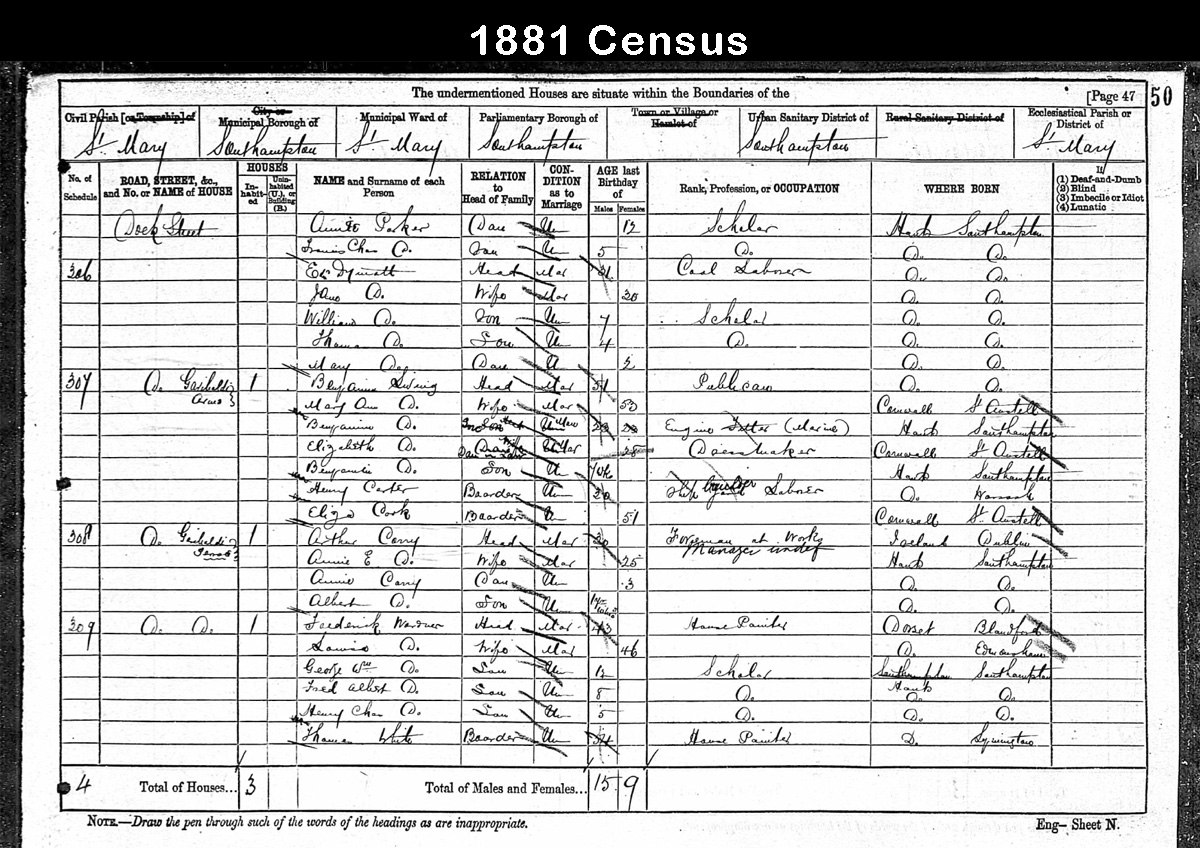 1881 Census
The undermentioned Houses are situate within the Boundaries of the [Page 47 50
Civil Parish [or Township] of City or Municipal Borough of Municipal Ward of Parliamentary Borough of Town or Village or Hamlet of Urban Sanitary District of Rural Sanitary District of Ecclesiastical Parish or District of
St. Mary Southampton St. Mary Southampton Southampton St. Mary
No. of Schedule ROAD, STREET, &c., and No. or NAME of HOUSE HOUSES In-habit-ed Unin-habited (U.), or Building (B.) NAME and Surname of each Person RELATION to Head of Family CON-DITION as to Marriage AGE last Birthday of Males Females Rank, Profession, or OCCUPATION WHERE BORN If (1) Deaf-and-Dumb (2) Blind (3) Imbecile or Idiot (4) Lunatic
Dock Street Parker Dau Un 12 Scholar Hants Southampton
Chas D. Son Un 5 D. D. D.
306 Head Mar 31 Coal Laborer D. D.
Jane D. Wife Mar 30 D. D.
William D. Son Un 7 Scholar D. D.
Thomas D. Son Un 4 D. D. D.
Mary Do. Dau U 2 D. D.
307 D. Garibaldi Arms 1 Head Mar 51 Publican D. D.
Mary Ann D. Wife Mar 53 Cornwall St Austell
Benjamin D. Son Un 23 Engine Fitter (Marine) Hants Southampton
Elizabeth D. Dau in Law Wife Mar 25 Dressmaker Cornwall St Austell
Benjamin D. Son Un Hants Southampton
Henry Carter Boarder Un 20 Ship Laborer D.
Eliza Cook Boarder Un 51 Cornwall St. Austell
308 D. Garibaldi 1 Arthur Corry Head Mar Foreman at Works Manager under Ireland Dublin
Annie E D. Wife Mar 25 Hants Southampton
Annie Corry Dau Un 3 D. D.
Albert D. Son Un D. D.
309 D. D. 1 Frederick Head Mar 43 House Painter Dorset Blandford
Louisa D. Wife Mar 46 D.
George Wm D. Son Un 12 Scholar Southampton Southampton
Hants
Fred Albert D. Son Un 8 D. D. D.
Henry Chas D. Son Un 5 D. D. D.
Thomas White Boarder Un 54 House Painter D. Lymington
4 Total of Houses... 3 Total of Males and Females... 15 9
NOTE.—Draw the pen through such of the words of the headings as are inappropriate.
Eng— Sheet N.